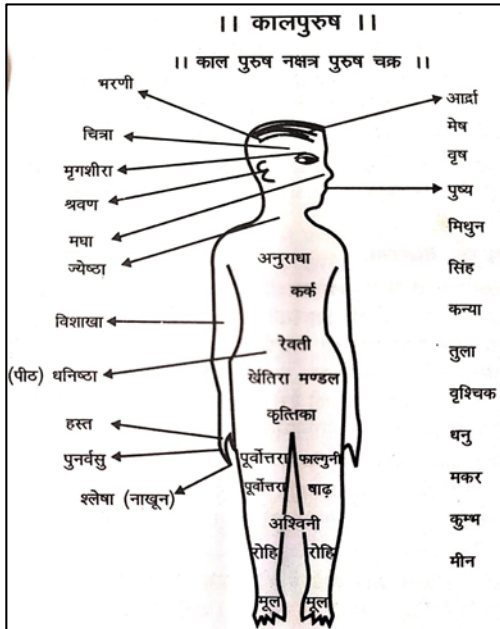 ।। कालपुरुष ।।
।। काल पुरुष नक्षत्र पुरुष चक्र ।।
भरणी
चित्रा
मृगशीरा
श्रवण
मघा
ज्येष्ठा
विशाखा
(पीठ) धनिष्ठा
हस्त
पुनर्वसु
श्लेषा (नाखून)
अनुराधा
कर्क
रेवती
मण्डल
कृत्तिका
पूर्वोत्तरा फाल्गुनी
पूर्वोत्तरा षाढ़
अश्विनी
रोहि रोहि
मूल मूल
आर्द्रा
मेष
वृष
पुष्य
मिथुन
सिंह
कन्या
तुला
वृश्चिक
धनु
मकर
कुम्भ
मीन